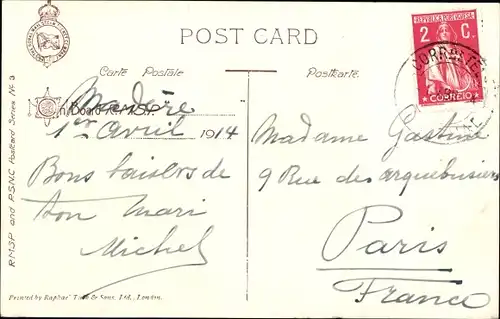 POST CARD
Carte Postale
Postkarte
RMSP and PSNC Postcard Series No 3
On Board R.M.S.P.
Madère
1er avril 1914
Bons baisers de
ton mari
Michel
Printed by Raphael Tuck & Sons, Ltd., London.
REPUBLICA PORTUGUESA
2 C.
CORREIO
Madame Gastine
9 Rue des arquebusiers
Paris
France